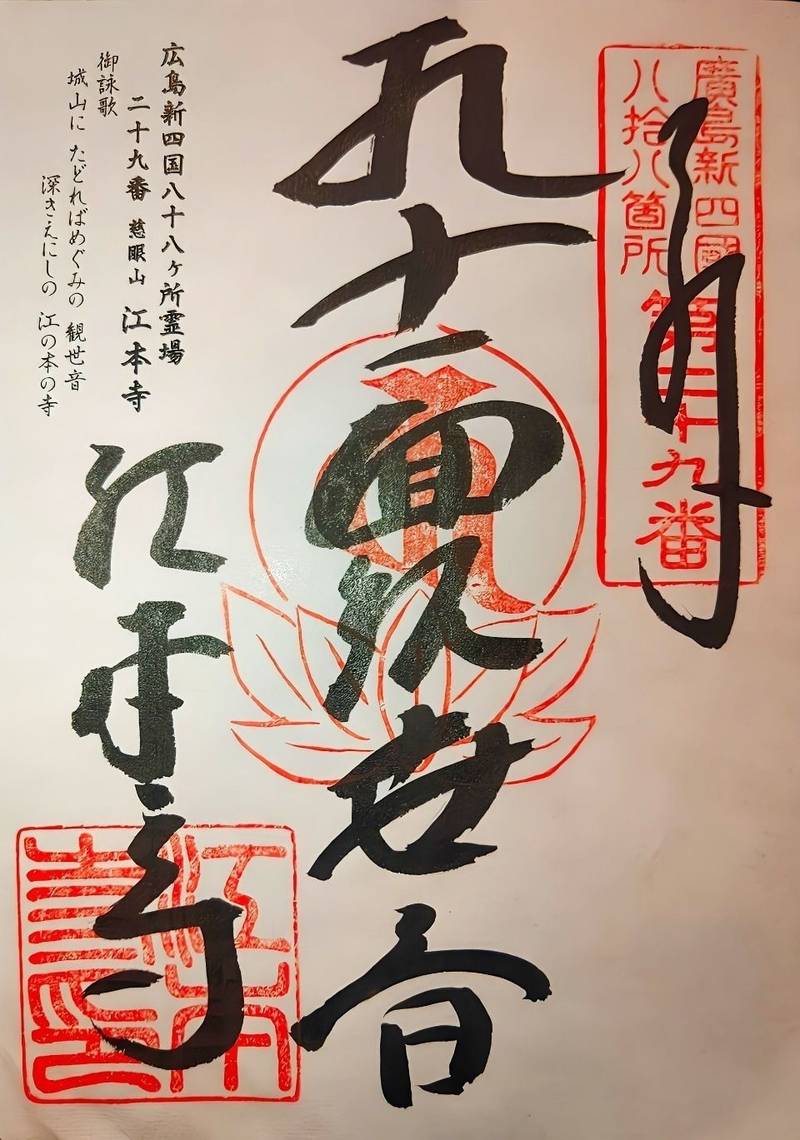 廣島新四國
八拾八箇所
第二十九番
十一面観世音
広島新四国八十八ヶ所霊場
二十九番 慈眼山 江本寺
御詠歌
城山に たどればめぐみの 観世音
深きえにしの 江の本の寺
江本寺
江本寺印